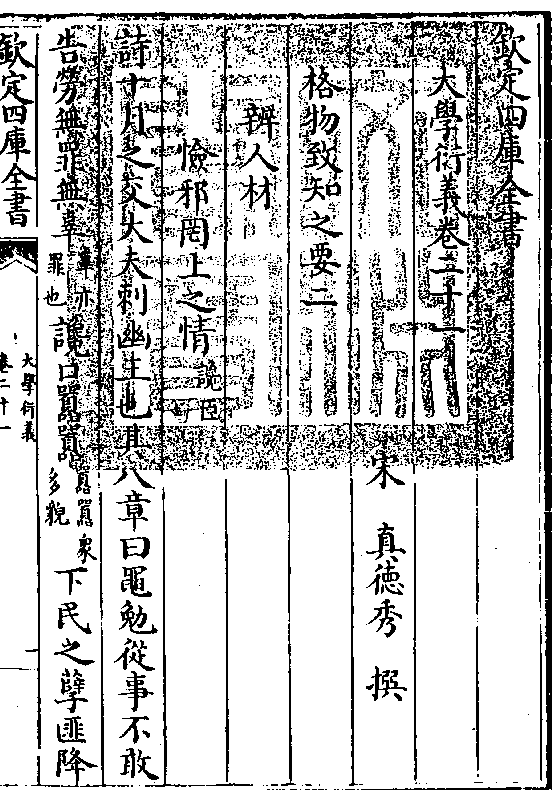 欽定四庫全書
大學衍義卷二十一
宋 真德秀 撰
格物致知之要二
辨人材
憸邪罔上之情讒臣
詩十月之交大夫刺幽王也其八章曰黽勉從事不敢
告勞無罪無辜辜亦罪也讒口囂囂囂囂衆多貌下民之孽匪降
欽定四庫全書
大學衍義
卷二十一